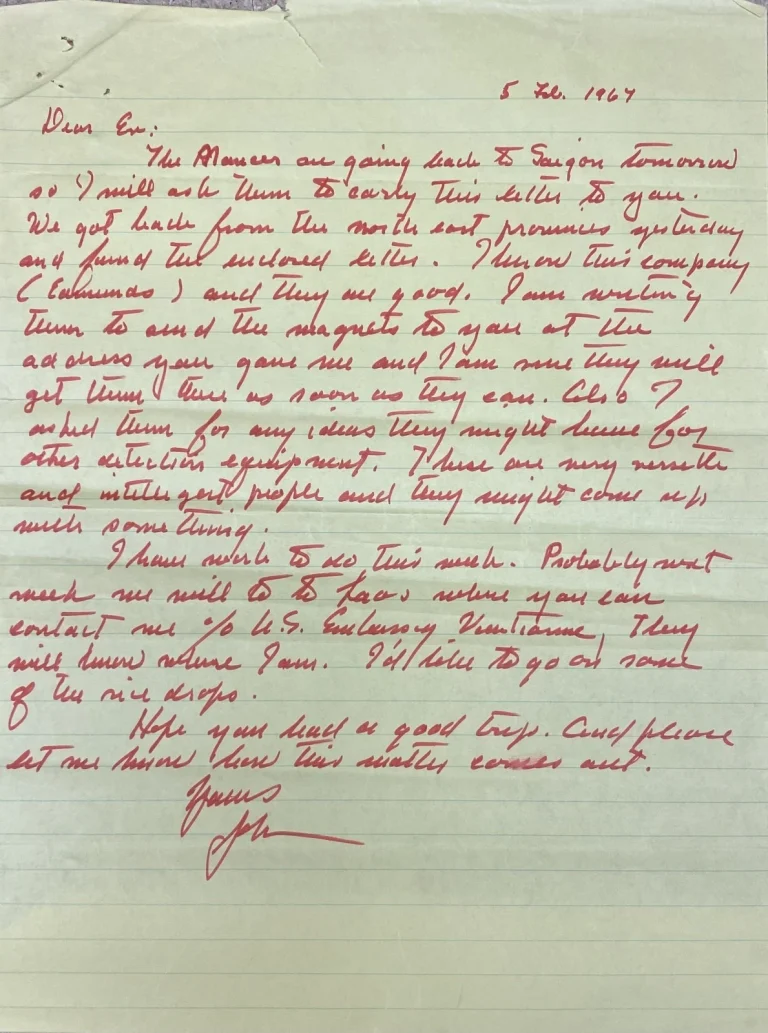 5 Feb. 1967
Dear Ev:
The are going back to Saigon tomorrow
so I will ask them to carry this letter to you.
We got back from the north east provinces yesterday
and found the enclosed letter. I know this company
(Edmunds) and they are good. I am writing
them to send the magnets to you at the
address you gave me and I am sure they will
get them there as soon as they can. Also I
asked them for any ideas they might have for
other detection equipment. These are very versatile
and intelligent people and they might come up
with something.
I have work to do this week. Probably next
week we will to to Laos where you can
contact me c/o U.S. Embassy Vientianne, They
will know where I am. I'd like to go on some
of the rice drops.
Hope you had a good trip. And please
let me know how this matter comes out.
Yours
John